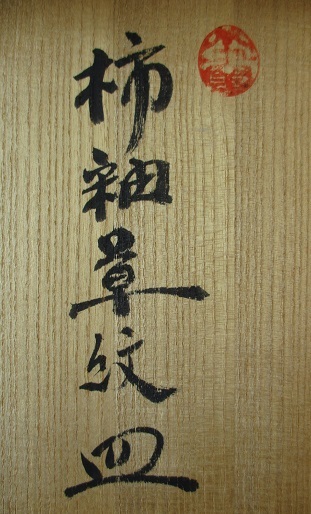 柿釉草紋皿